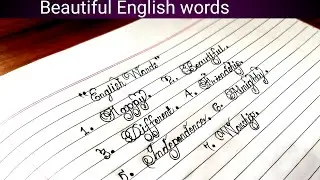 Beautiful English words
"English Words"
1. Happy. 2. Beautiful.
3. Different. 4. Friendship.
5. Independence. 6. Almighty.
7.